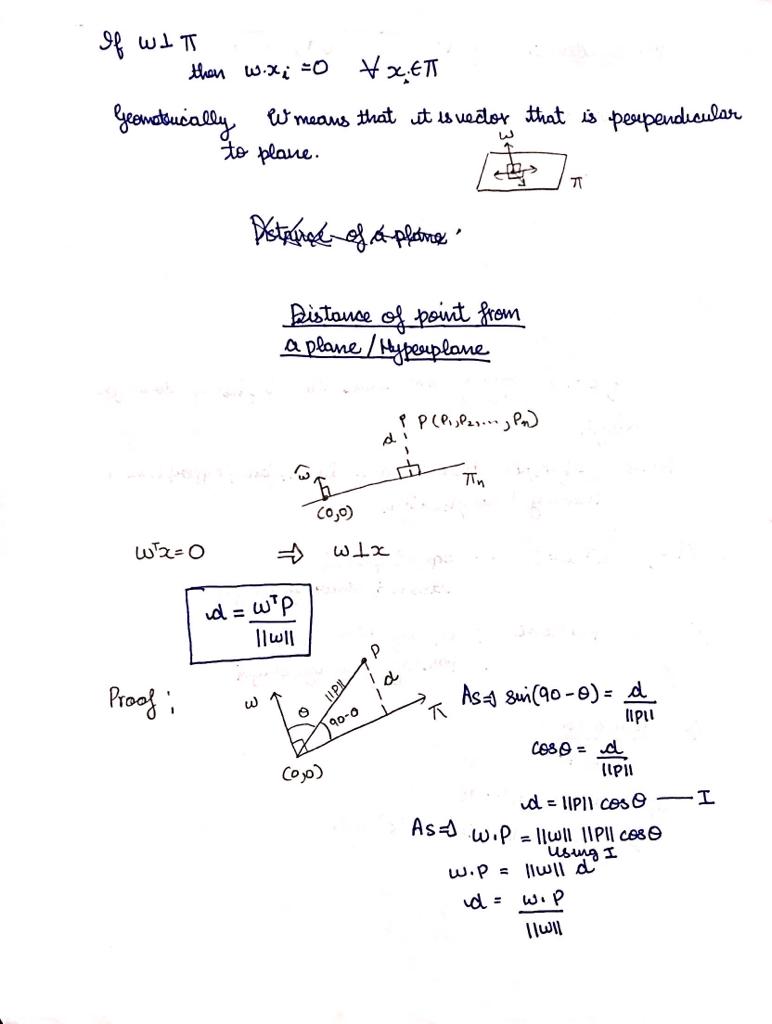 If w⊥π
then w.xᵢ =0 ∀ xᵢ∈π
Geometrically W means that it is vector that is perpendicular
to plane.
w
π
Distance of a plane.
Distance of point from
a plane/Hyperplane
P P(P₁,P₂,..., Pₙ)
d
ŵ
πₙ
(0,0)
wᵀx=0 ⇒ w⊥x
d = wᵀP / ||w||
Proof:
w
P
||P||
d
θ
90-θ
π
(0,0)
As⇒ sin(90-θ) = d / ||P||
cosθ = d / ||P||
d = ||P|| cosθ — I
As⇒ w.P = ||w|| ||P|| cosθ
using I
w.P = ||w|| d
d = w.P / ||w||